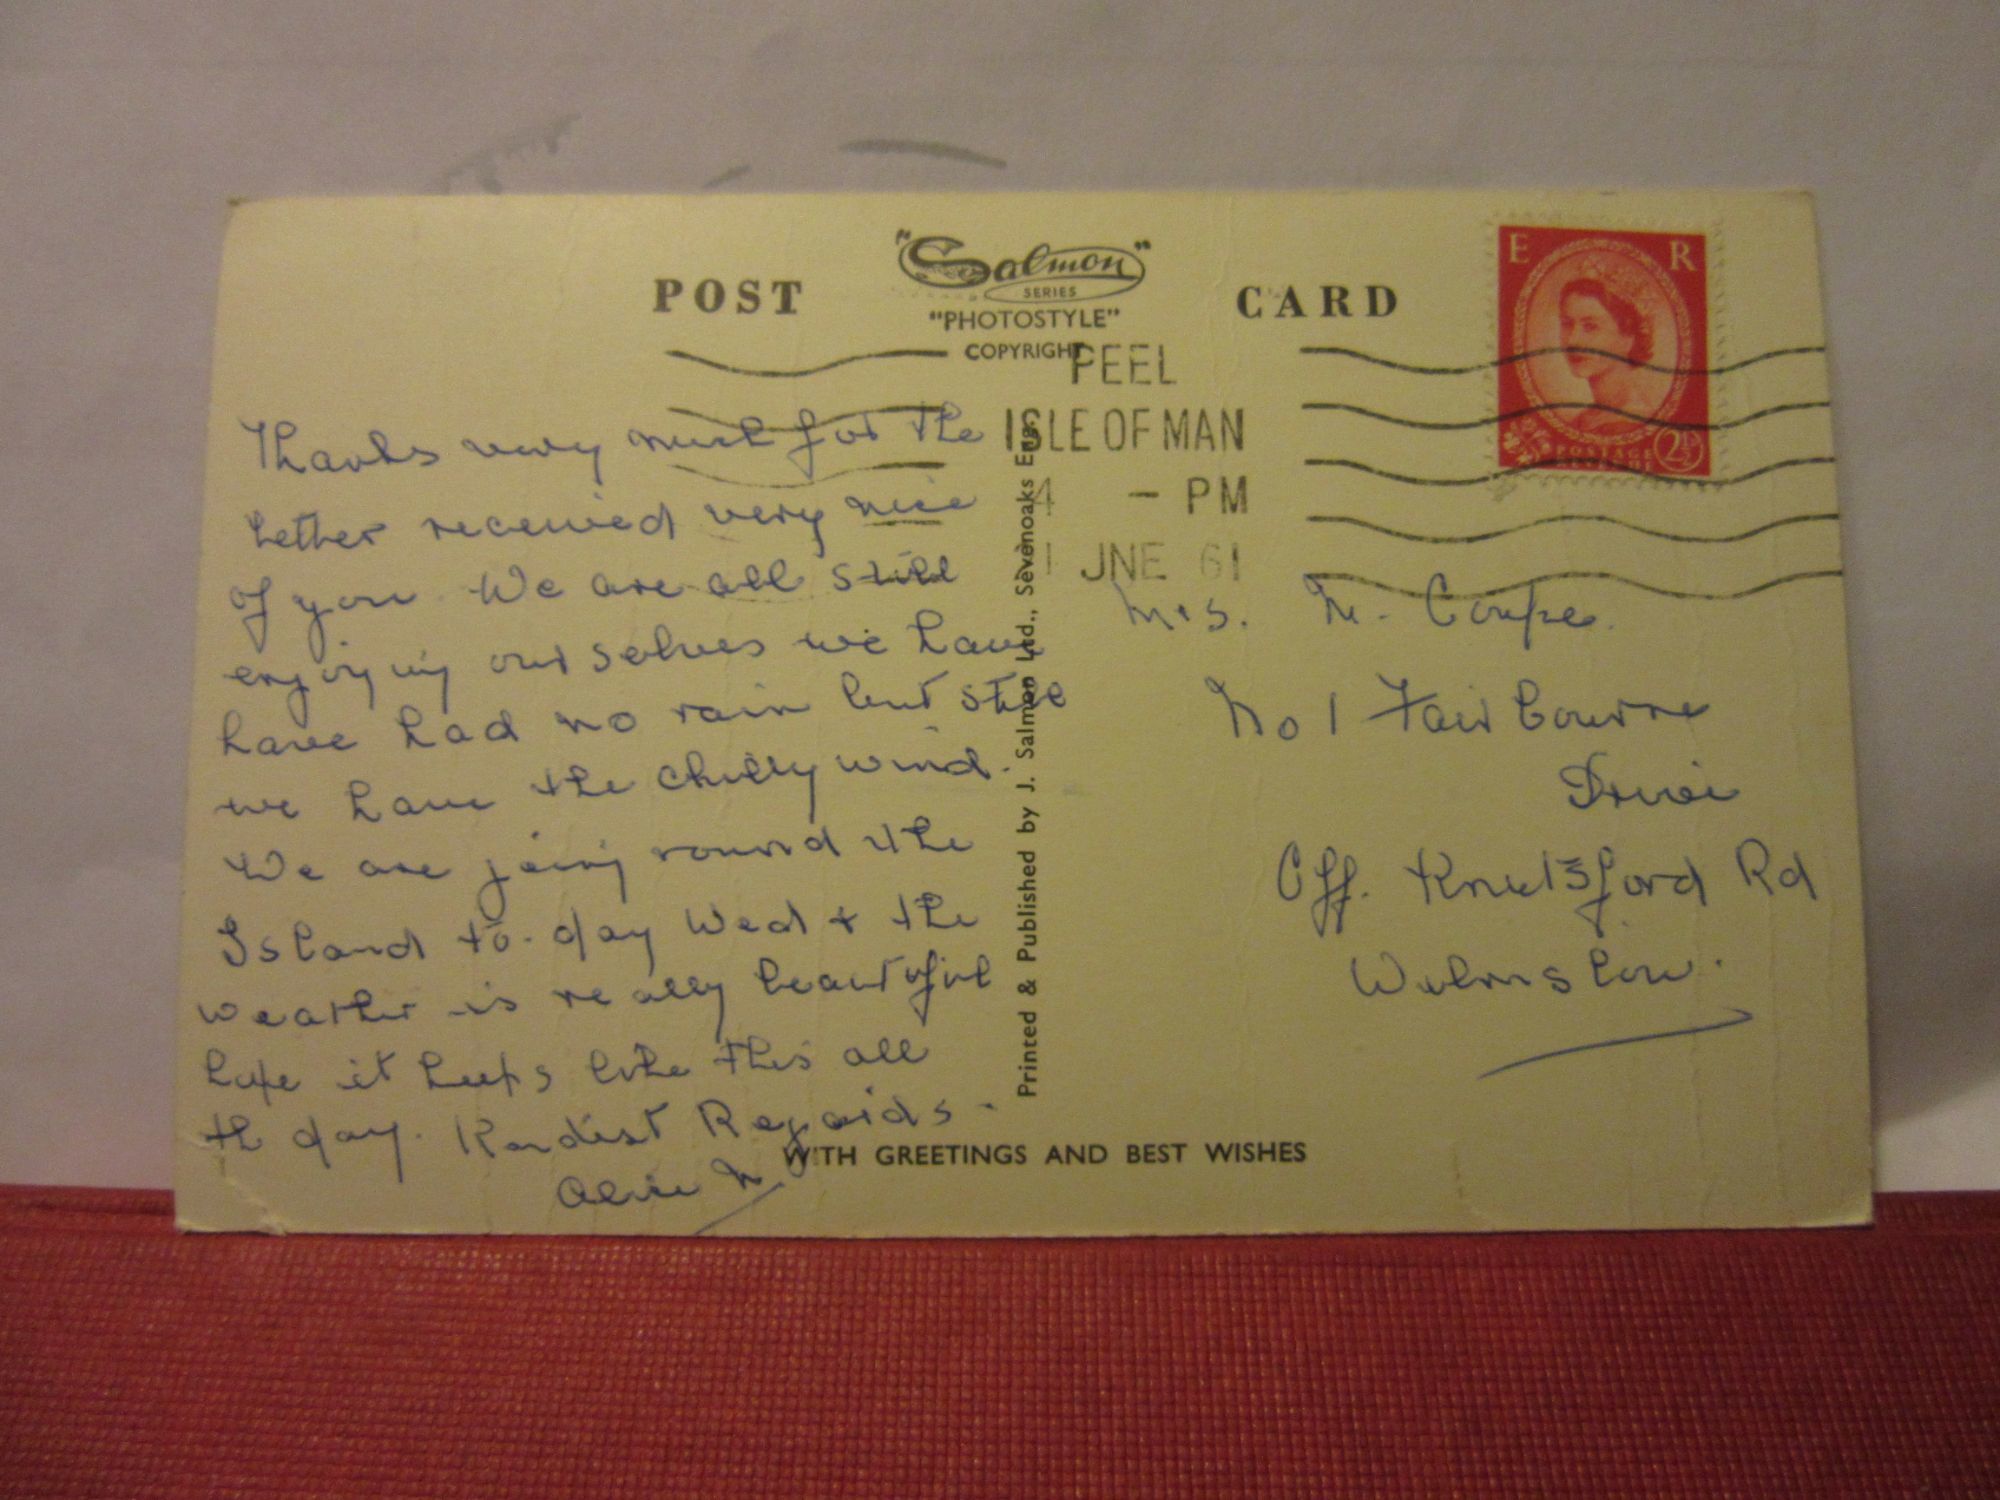 POST "Salmon" CARD
SERIES
"PHOTOSTYLE"
COPYRIGHT
E R
POSTAGE
REVENUE
2½D
PEEL
ISLE OF MAN
4 - PM
1 JNE 61
Thanks very much for the
Letter received very nice
of you. We are all still
enjoying ourselves we have
have had no rain but still
we have the chilly wind.
We are going round the
Island to-day Wed + the
weather is really beautiful
hope it keeps like this all
th day. Kindest Regards.
Printed & Published by J. Salmon Ltd., Sevenoaks Eng.
Mrs. M. Coupe.
No 1 Fairbourne
Drive
Off. Knutsford Rd
Wilmslow.
WITH GREETINGS AND BEST WISHES